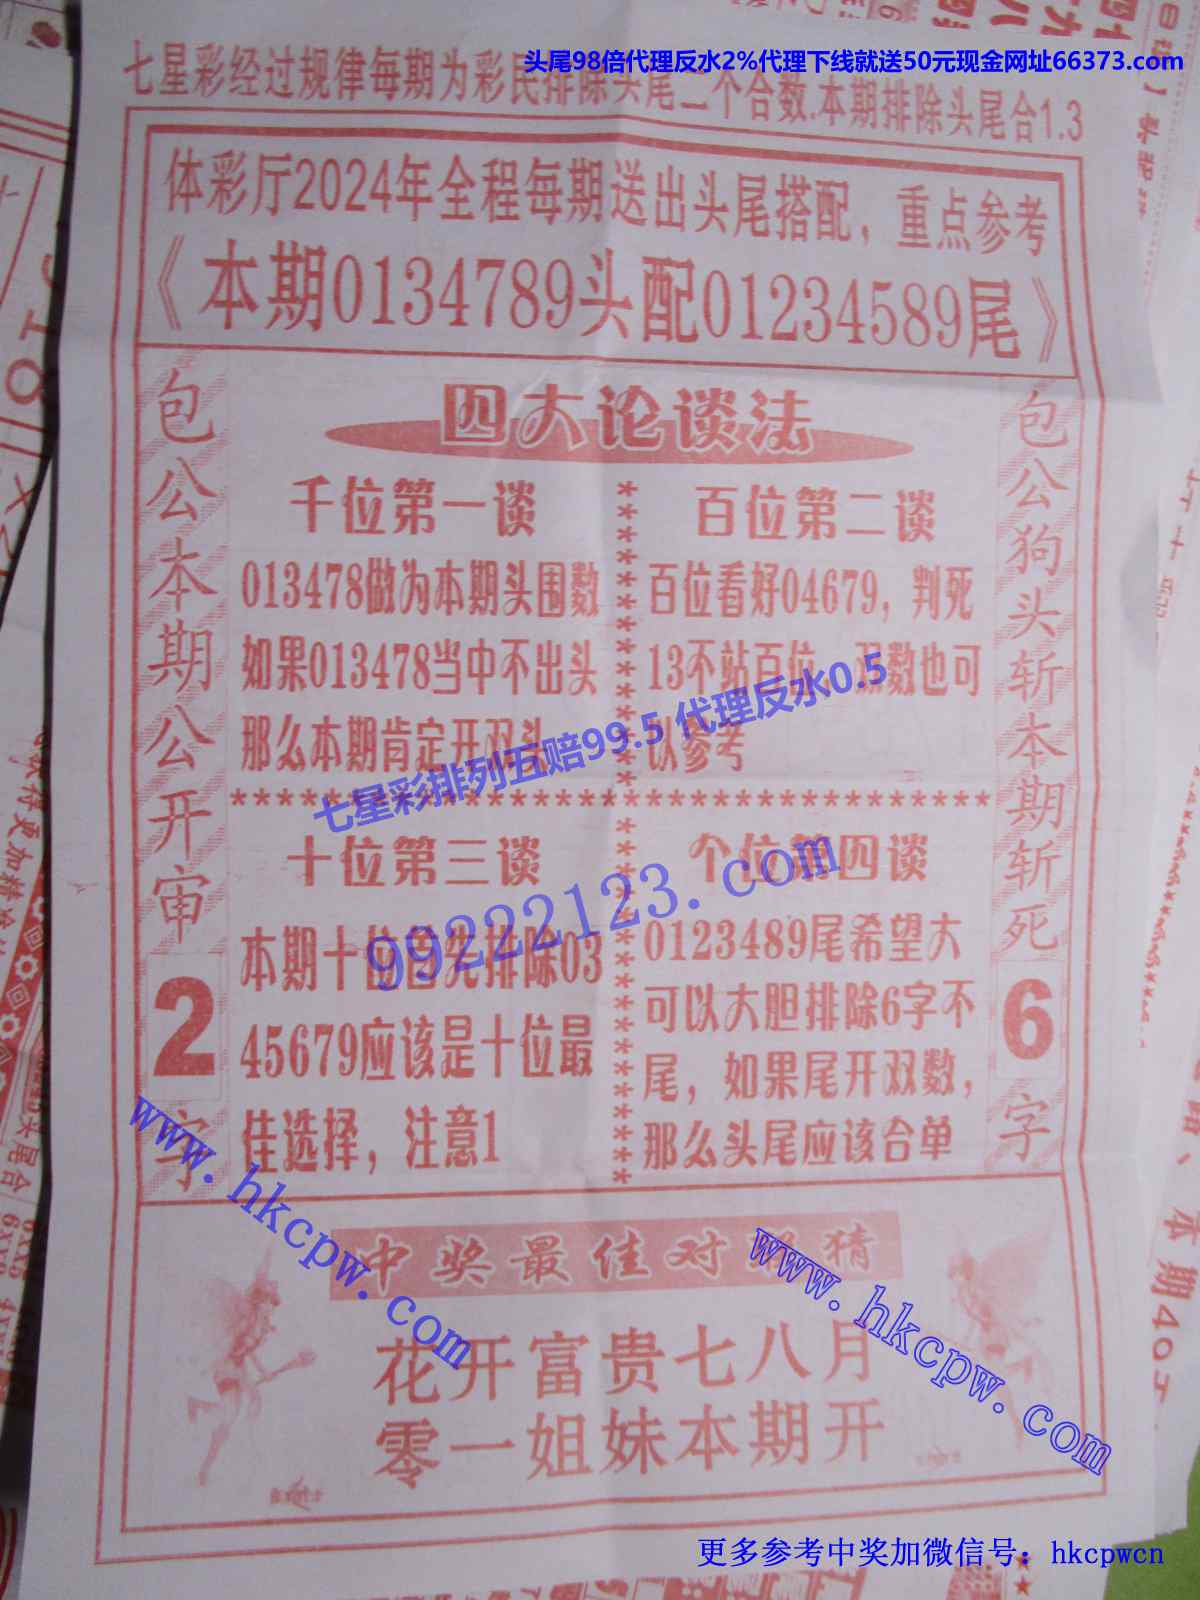 头尾98倍代理反水2%代理下线就送50元现金网址66373.com
七星彩经过规律每期为彩民排除头尾二个合数.本期排除头尾合1.3
体彩厅2024年全程每期送出头尾搭配，重点参考
《本期0134789头配01234589尾》
包公本期公开审2字
四大论谈法
千位第一谈
013478做为本期头围数
如果013478当中不出头
那么本期肯定开双头
百位第二谈
百位看好04679，判死
13不站百位，数也可
以参考
七星彩排列五赔99.5 代理反水0.5
************************
十位第三谈
本期十位首先排除03
45679应该是十位最
佳选择，注意1
个位第四谈
0123489尾希望大
可以大胆排除6字不
尾，如果尾开双数，
那么头尾应该合单
99222123.com
包公狗头斩本期斩死6字
www.hkcpw.com
www.hkcpw.com
中奖最佳对猜
花开富贵七八月
零一姐妹本期开
更多参考中奖加微信号：hkcpwcn